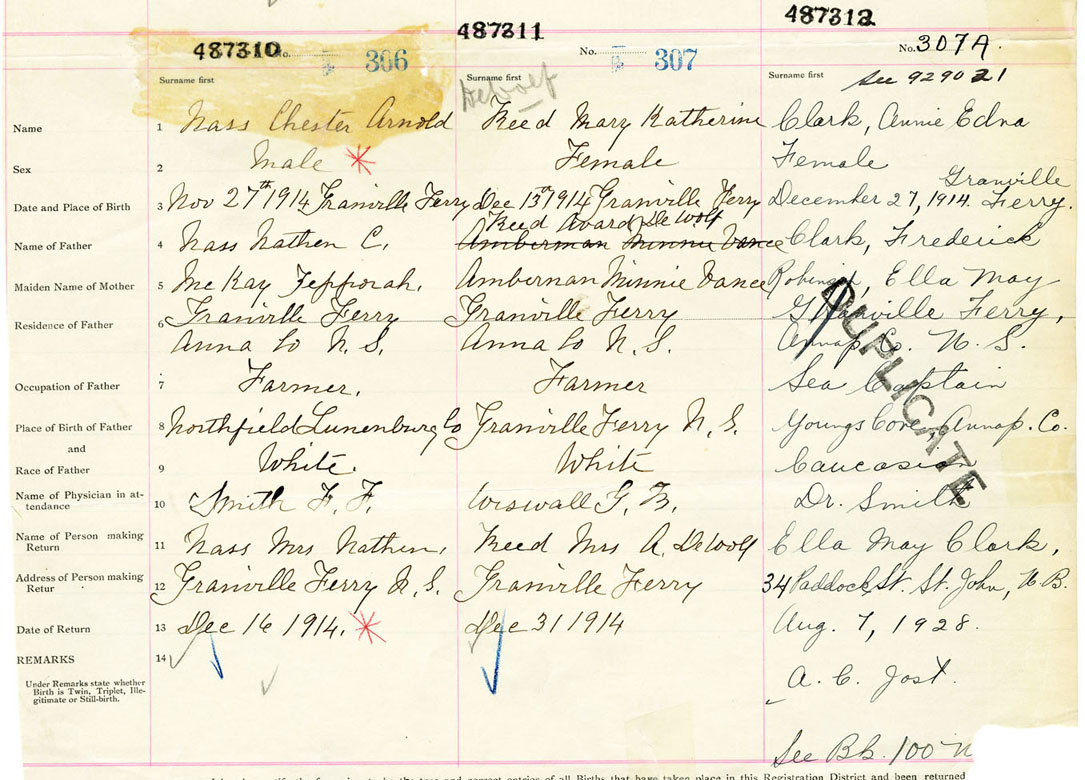 487310 487311 487312
No. 306 No. 307 No. 307A.
Surname first Surname first Surname first
DeWolf See 929021
Name 1 Nass Chester Arnold Reed Mary Katherine Clark, Annie Edna
Sex 2 Male Female Female
Granville
Date and Place of Birth 3 Nov 27th 1914 Granville Ferry Dec 13th 1914 Granville Ferry December 27, 1914. Ferry.
Reed Avard DeWolf
Name of Father 4 Nass Nathen C. Amberman Minnie Vance Clark, Frederick
Maiden Name of Mother 5 McKay Zepporah. Amberman Minnie Vance Robinson, Ella May
Residence of Father 6 Granville Ferry Granville Ferry Granville Ferry,
Anna Co N.S. Anna Co N.S. Annap. Co. N.S.
Occupation of Father 7 Farmer. Farmer Sea Captain
Place of Birth of Father 8 Northfield Lunenburg Co Granville Ferry N.S. Youngs Cove, Annap. Co.
and
Race of Father 9 White. White Caucasian
Name of Physician in at-
tendance 10 Smith F. F. Dr. Smith
Name of Person making
Return 11 Nass Mrs Nathen. Reed Mrs A. DeWolf Ella May Clark,
Address of Person making
Retur 12 Granville Ferry N.S. Granville Ferry 34 Paddock St. St. John, N.B.
Date of Return 13 Dec 16 1914. Dec 31 1914 Aug. 7, 1928.
REMARKS 14
Under Remarks state whether
Birth is Twin, Triplet, Ille-
gitimate or Still-birth.
A. C. Jost.
DUPLICATE
See Bk. 100
the true and correct entries of all Births that have taken place in this Registration District and been returned